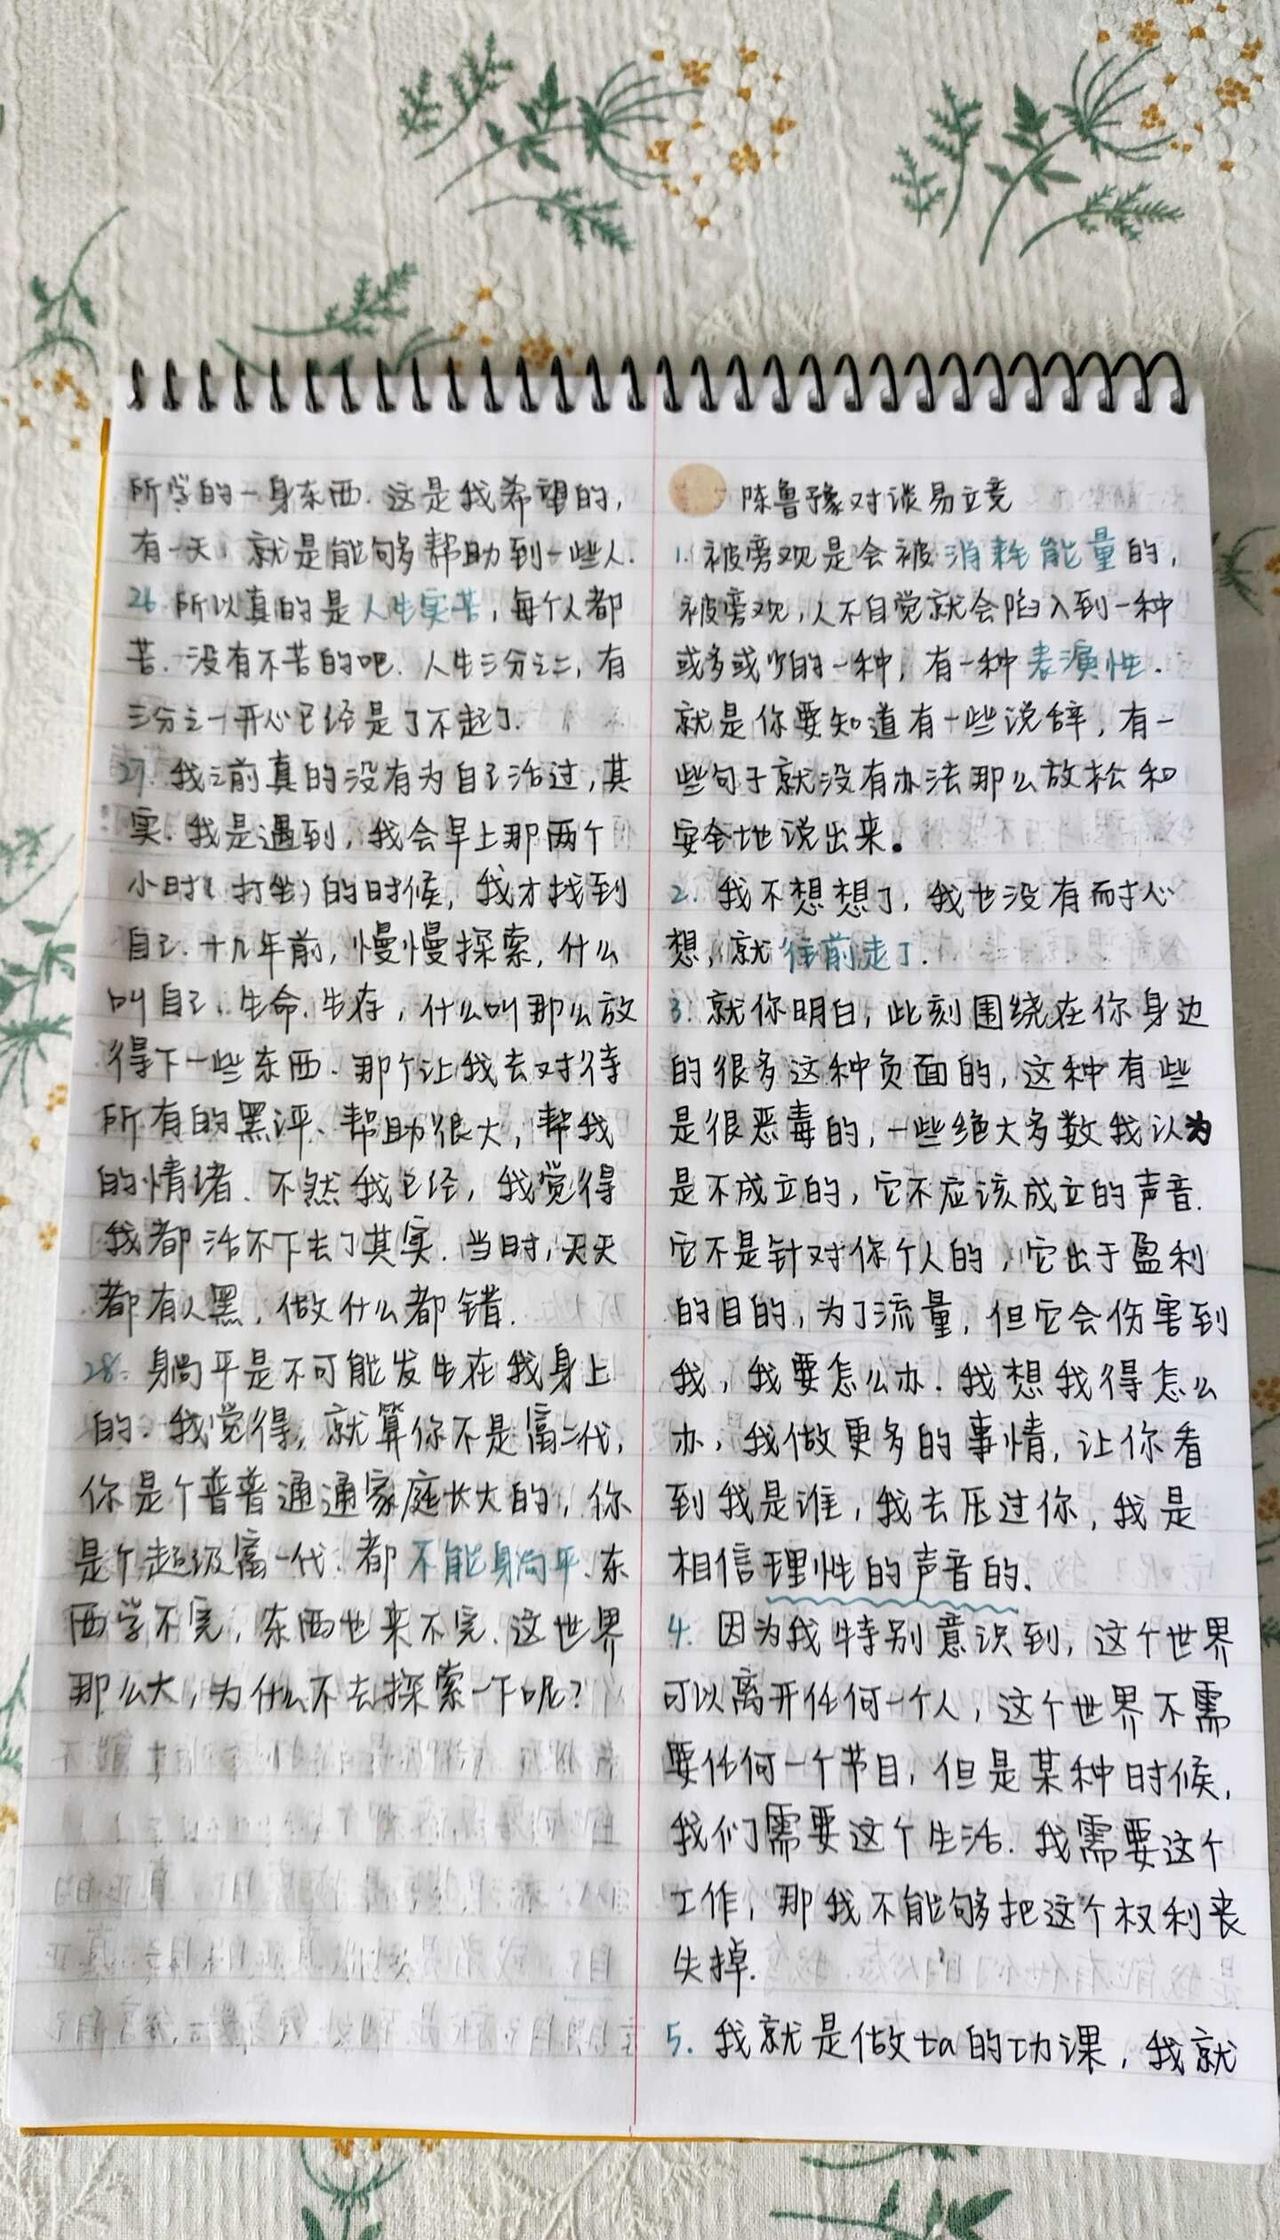 所学的一身东西.这是我希望的,
有一天,就是能够帮助到一些人.
26.所以真的是人生实苦,每个人都
苦.没有不苦的吧.人生三分之二,有
三分之一开心已经是了不起了.
27.我之前真的没有为自己活过,其
实.我是遇到,我会早上那两个
小时(打坐)的时候,我才找到
自己.十几年前,慢慢探索,什么
叫自己、生命、生存,什么叫那么放
得下一些东西.那个让我去对待
所有的黑评、帮助很大,帮我
的情绪.不然我已经,我觉得
我都活不下去了其实.当时,天天
都有人黑,做什么都错.
28.躺平是不可能发生在我身上
的.我觉得,就算你不是富二代,
你是个普普通通家庭长大的,你
是个超级富一代.都不能躺平.东
西学不完,东西也来不完.这世界
那么大,为什么不去探索一下呢?
陈鲁豫对谈易立竞
1.被旁观是会被消耗能量的,
被旁观,人不自觉就会陷入到一种
或多或少的一种,有一种表演性.
就是你要知道有一些说辞,有一
些句子就没有办法那么放松和
安全地说出来。
2.我不想想了,我也没有耐心
想,就往前走了.
3.就你明白,此刻围绕在你身边
的很多这种负面的,这种有些
是很恶毒的,一些绝大多数我认为
是不成立的,它不应该成立的声音.
它不是针对你个人的,它出于盈利
的目的,为了流量,但它会伤害到
我,我要怎么办.我想我得怎么
办,我做更多的事情,让你看
到我是谁,我去压过你,我是
相信理性的声音的.
4.因为我特别意识到,这个世界
可以离开任何一个人,这个世界不需
要任何一个节目,但是某种时候,
我们需要这个生活.我需要这个
工作,那我不能够把这个权利丧
失掉.
5.我就是做ta的功课,我就